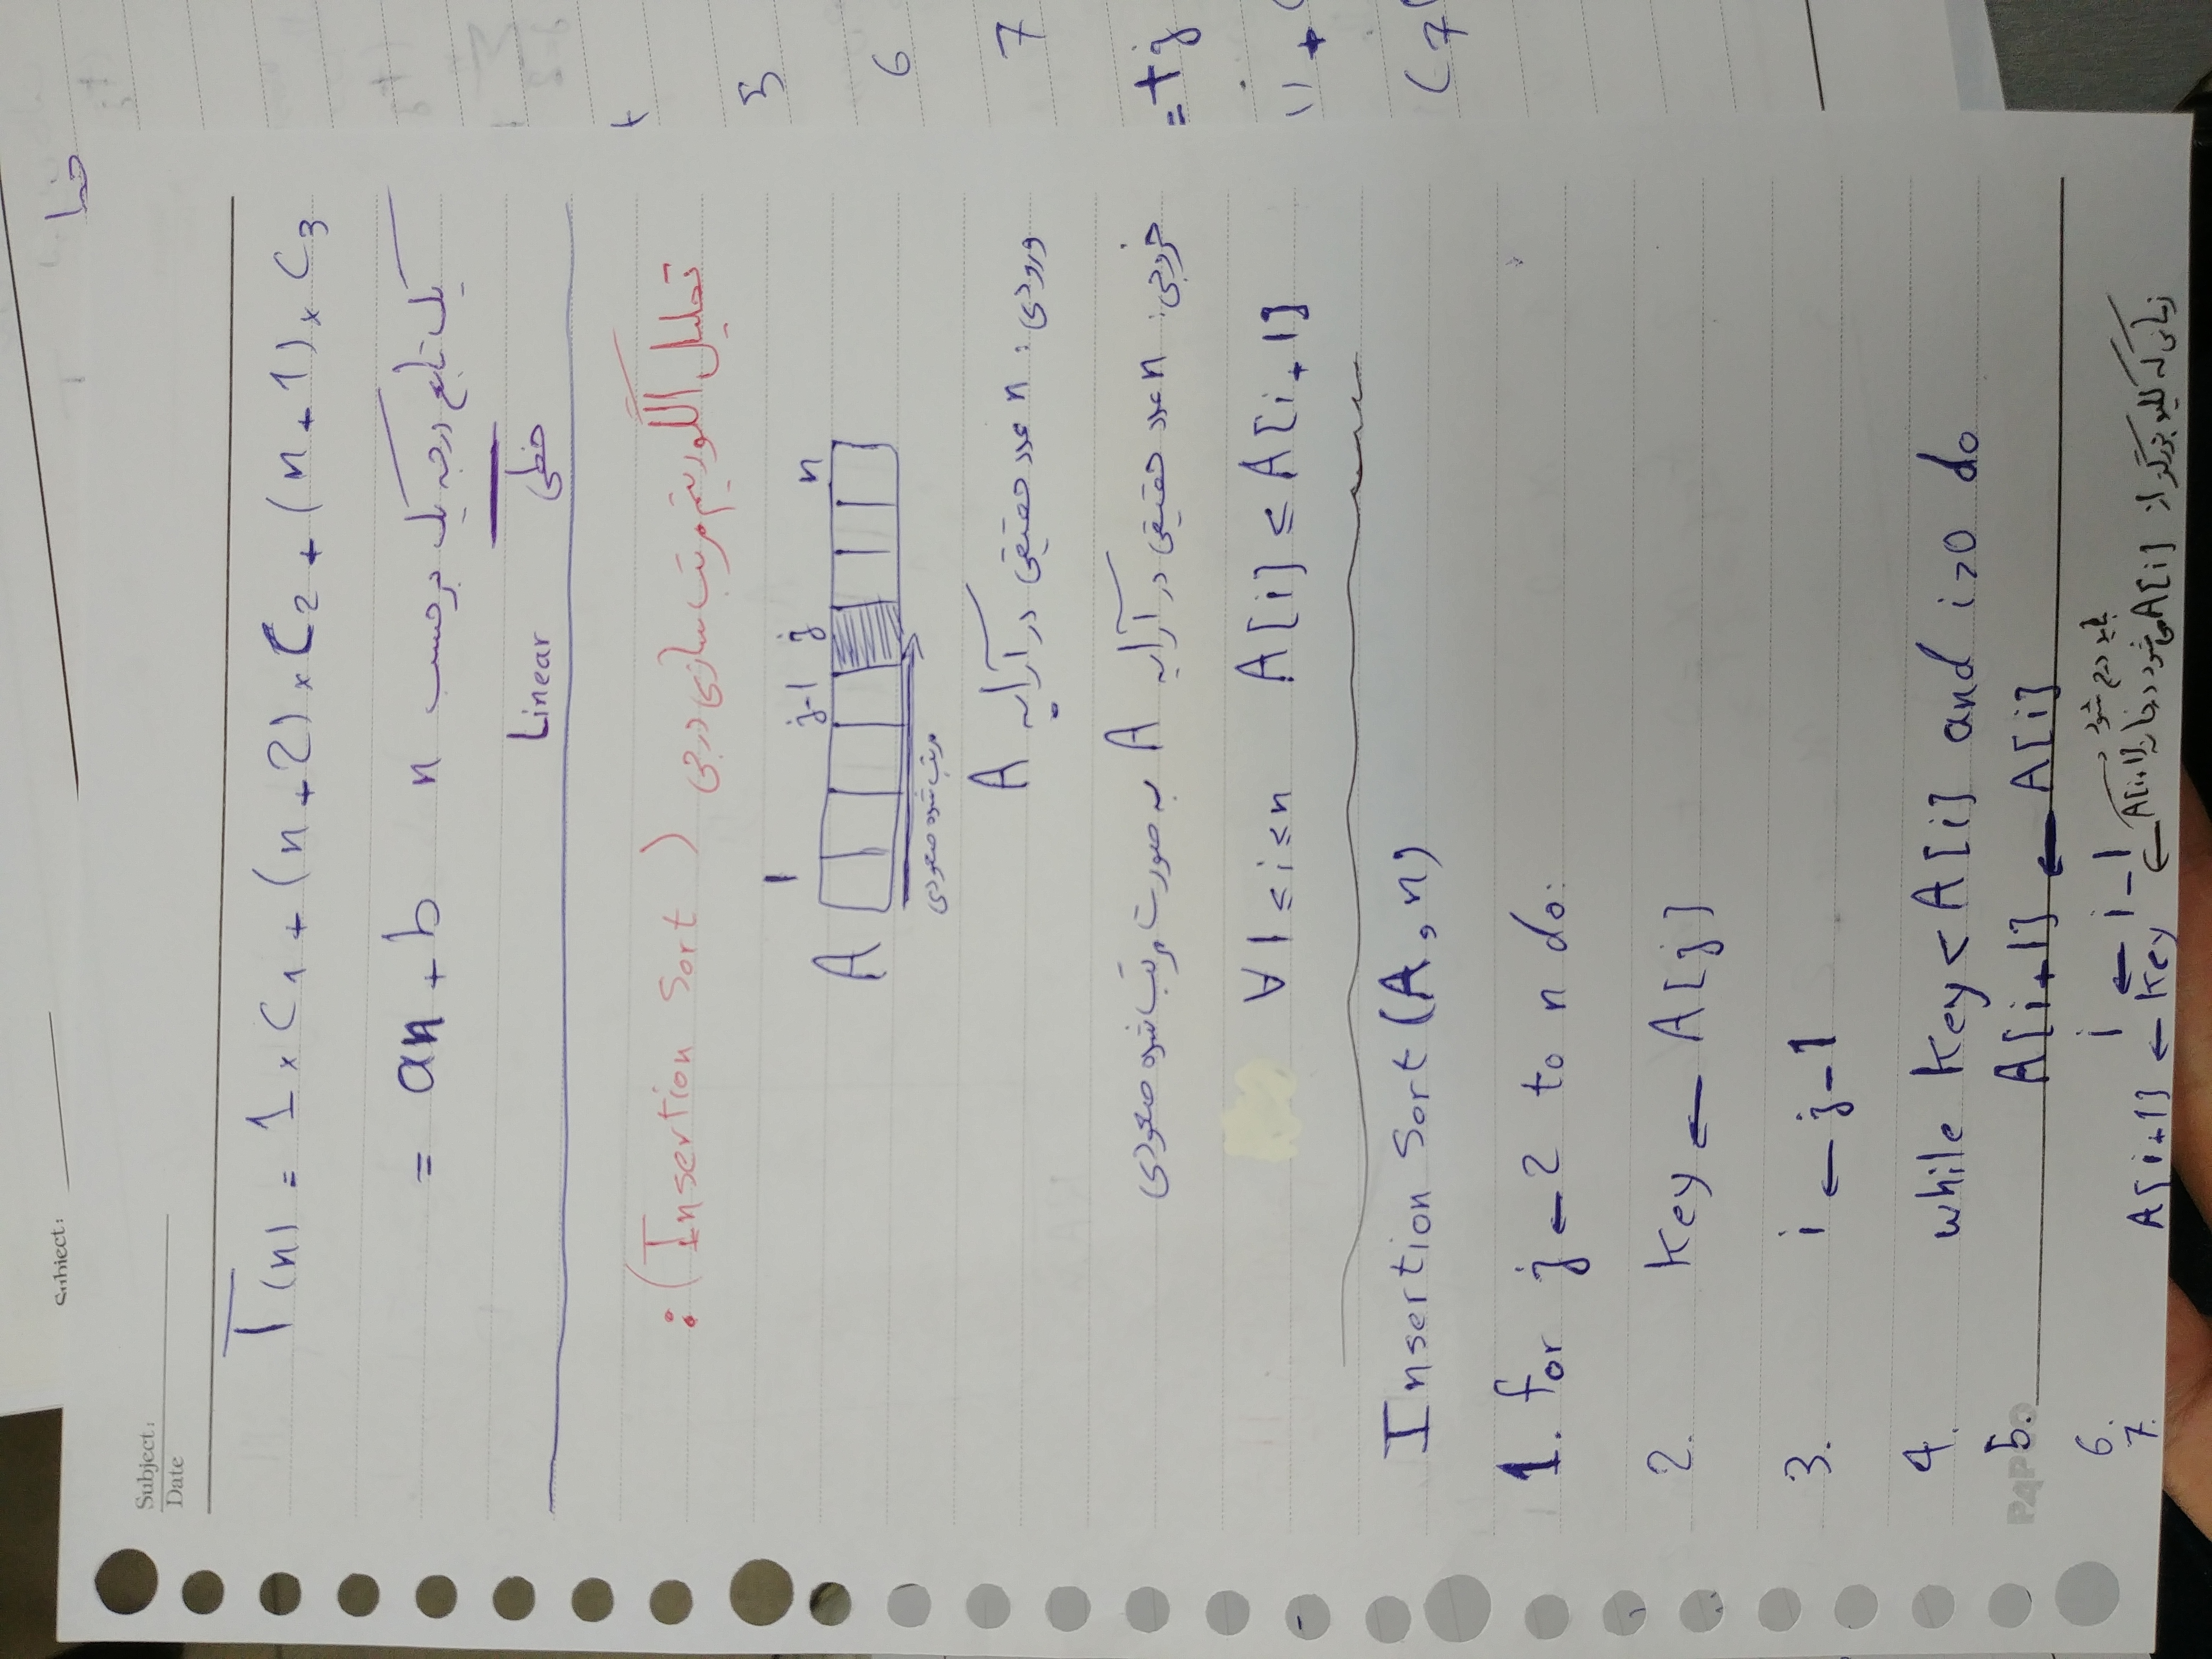 Subject:
خطا
Subject:
Date
T(n) = 1 × C1 + (n+2) × C2 + (n+1) × C3
= an + b یک تابع درجه یک برحسب n
خطی Linear
تحلیل الگوریتم مرتب سازی درجی (Insertion Sort):
1 j-1 j n
A
مرتب شده صعودی
ورودی: n عدد حقیقی در آرایه A
خروجی: n عدد حقیقی در آرایه A به صورت مرتب شده صعودی
∀ 1 ≤ i ≤ n A[i] ≤ A[i+1]
Insertion Sort(A, n)
1. for j ← 2 to n do:
2. Key ← A[j]
3. i ← j-1
4. while Key < A[i] and i>0 do
5. A[i+1] ← A[i]
6. i ← i-1
7. A[i+1] ← Key ← زمانی که کلید بزرگتر از A[i] می‌شود در خانه A[i+1] باید درج شود
PAPCO
5
6
7
= tj